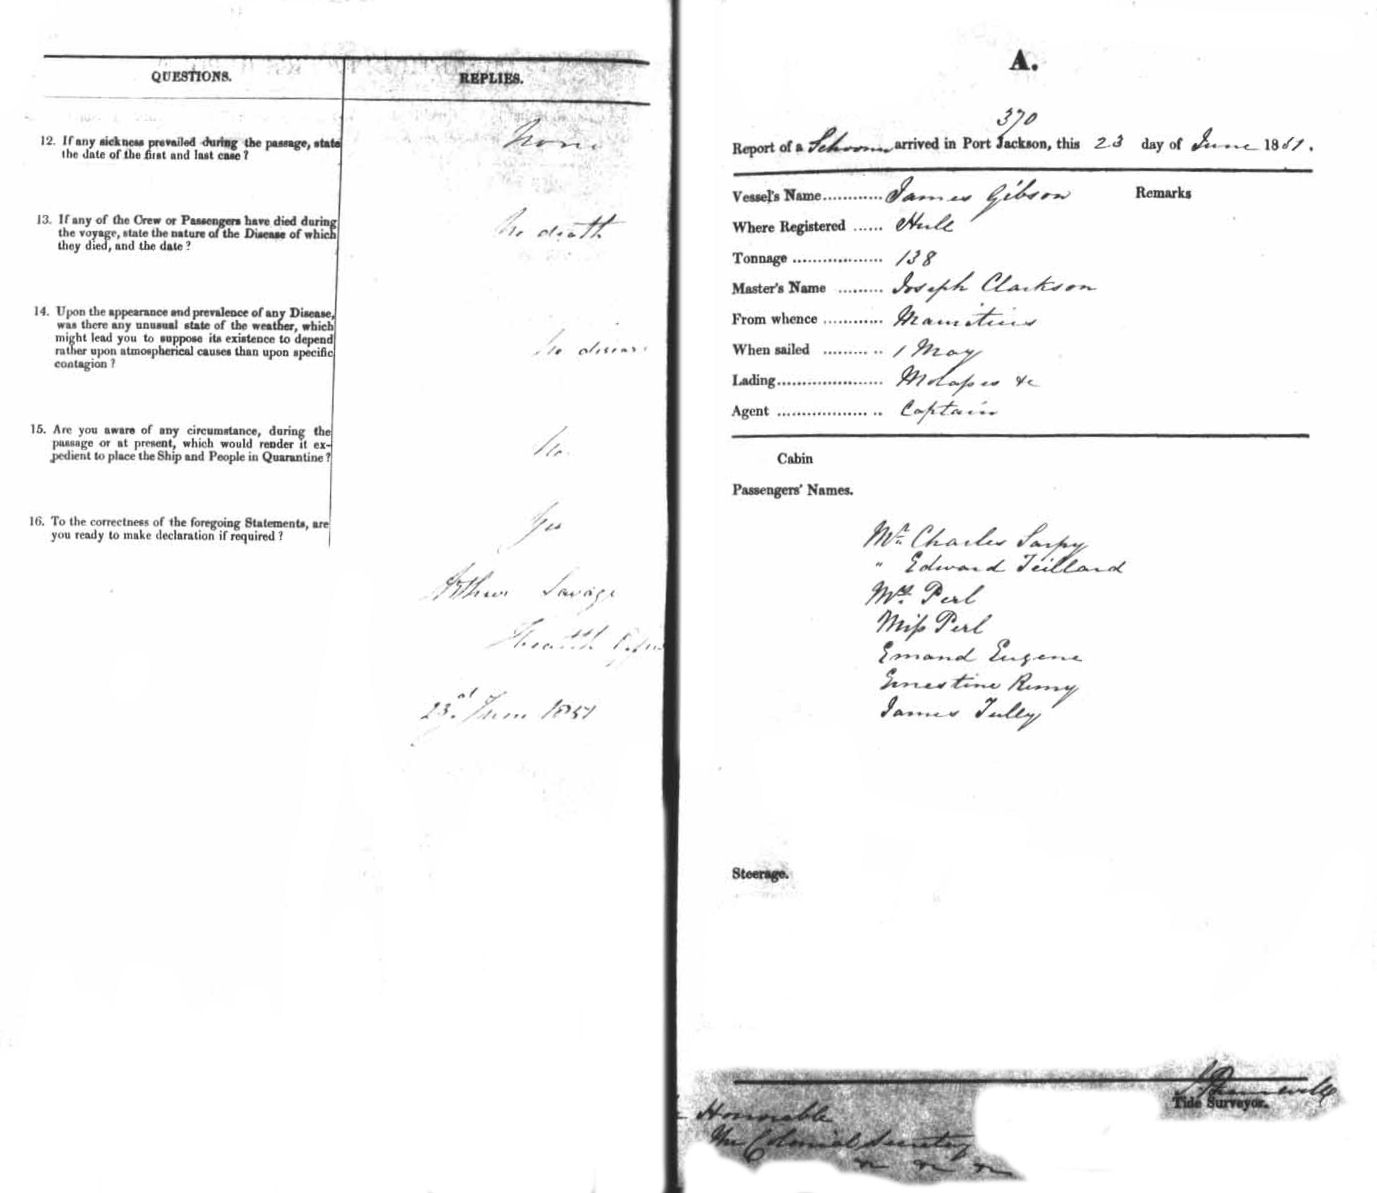 QUESTIONS.
REPLIES.
12. If any sickness prevailed during the passage, state
the date of the first and last case?
None
13. If any of the Crew or Passengers have died during
the voyage, state the nature of the Disease of which
they died, and the date?
No death
14. Upon the appearance and prevalence of any Disease,
was there any unusual state of the weather, which
might lead you to suppose its existence to depend
rather upon atmospherical causes than upon specific
contagion?
No disease
15. Are you aware of any circumstance, during the
passage or at present, which would render it ex-
pedient to place the Ship and People in Quarantine?
No.
16. To the correctness of the foregoing Statements, are
you ready to make declaration if required?
Yes
Arthur Savage
Health
23d. June 1851
A.
370
Report of a Schooner arrived in Port Jackson, this 23 day of June 1851.
Vessel's Name............ James Gibson
Remarks
Where Registered ...... Hull
Tonnage .................. 138
Master's Name ......... Joseph Clarkson
From whence ............ Mauritius
When sailed ......... .. 1 May
Lading..................... Molasses &c
Agent .................. .. Captain
Cabin
Passengers' Names.
Mr. Charles Sarpy
" Edward Teilland
Mrs. Perl
Miss Perl
Emand Eugene
Ernestine Remy
James Tully
Steerage.
Tide Surveyor.
Honorable
The Colonial Secretary